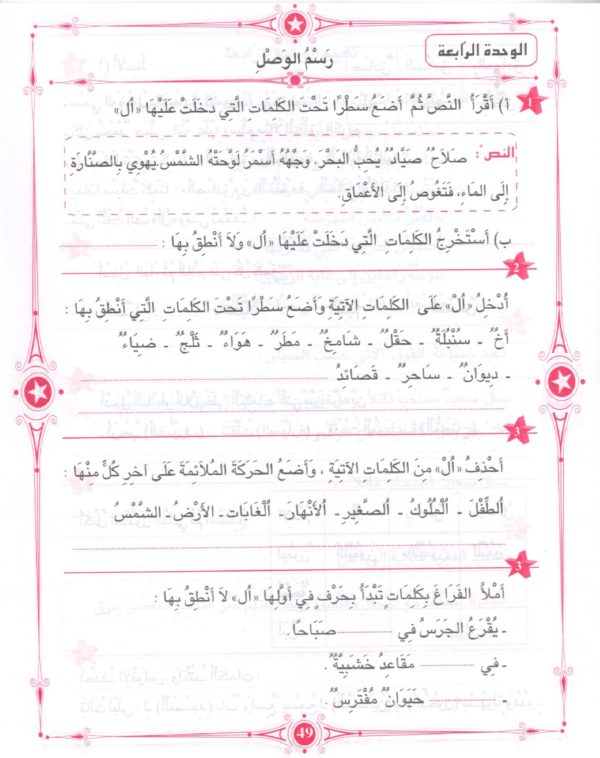 الوحدة الرابعة
رَسْمُ الوَصْلِ
1
أ) أَقْرَأُ النَّصَّ ثُمَّ أضَعُ سَطْرًا تَحْتَ الكَلِمَاتِ الَّتِي دَخَلَتْ عَلَيْهَا «ال»
النص: صَلَاحٌ صَيَّادٌ يُحِبُّ البَحْرَ. وَجْهُهُ أَسْمَرُ لَوَّحَتْهُ الشَّمْسُ.يُهْوِي بِالصِّنَّارَةِ
إِلَى المَاءِ، فَتَغُوصُ إِلَى الأَعْمَاقِ.
ب) أَسْتَخْرِجُ الكَلِمَاتِ الَّتِي دَخَلَتْ عَلَيْهَا «ال» وَلَا أَنْطِقُ بِهَا :
2
أُدْخِلُ «اُلْ» عَلَى الكَلِمَاتِ الآتِيَةِ وَأضَعُ سَطْرًا تَحْتَ الكَلِمَاتِ الَّتِي أَنْطِقُ بِهَا :
أَخٌ ـ سُنْبُلَةٌ ـ حَقْلٌ ـ شَامِخٌ ـ مَطَرٌ ـ هَوَاءٌ ـ ثَلْجٌ ـ ضِيَاءٌ
ـ دِيوَانٌ ـ سَاحِرٌ ـ قَصَائِدُ
3
أَحْذِفُ «اُلْ» مِنَ الكَلِمَاتِ الآتِيَةِ ، وَأضَعُ الحَرَكَةَ المُلَائِمَةَ عَلَى آخِرِ كُلٍّ مِنْهَا :
اُلطِّفْلَ ـ اُلْمُلُوكُ ـ اُلصَّغِيرِ ـ اُلأَنْهَارَ ـ اُلْغَابَاتِ ـ الأَرْضِ ـ الشَّمْسُ
3
أَمْلَأُ الفَرَاغَ بِكَلِمَاتٍ تَبْدَأُ بِحَرْفٍ فِي أَوَّلِهَا «ال» لَا أَنْطِقُ بِهَا :
ـ يُقْرَعُ الجَرَسُ فِي صَبَاحًا.
ـ فِي مَقَاعِدُ خَشَبِيَّةٌ .
ـ حَيَوَانٌ مُفْتَرِسٌ .
49